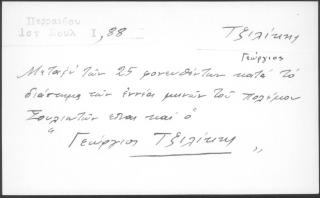 Περραιβού
Ιστ Σουλ Ι, 88
Τζιλίκης
Γεώργιος
Μεταξύ τῶν 25 φονευθέντων κατά τό
διάστημα τῶν ἐννέα μηνῶν τοῦ πολέμου
Σουλιωτῶν εἶναι καί ὁ
"Γεώργιος Τζιλίκης"